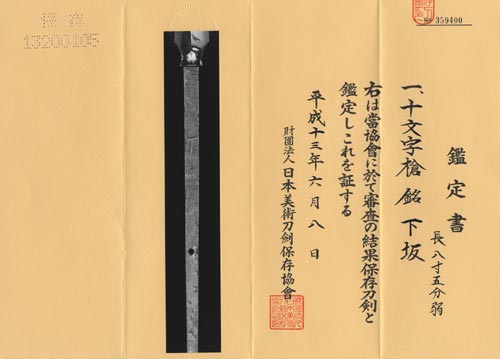 № 359400
鑑定書
一、十文字槍 銘 下坂
長八寸五分弱
右は當協會に於て審査の結果保存刀剣と
鑑定しこれを証する
平成十三年六月八日
財團法人 日本美術刀剣保存協會
保存
13200105